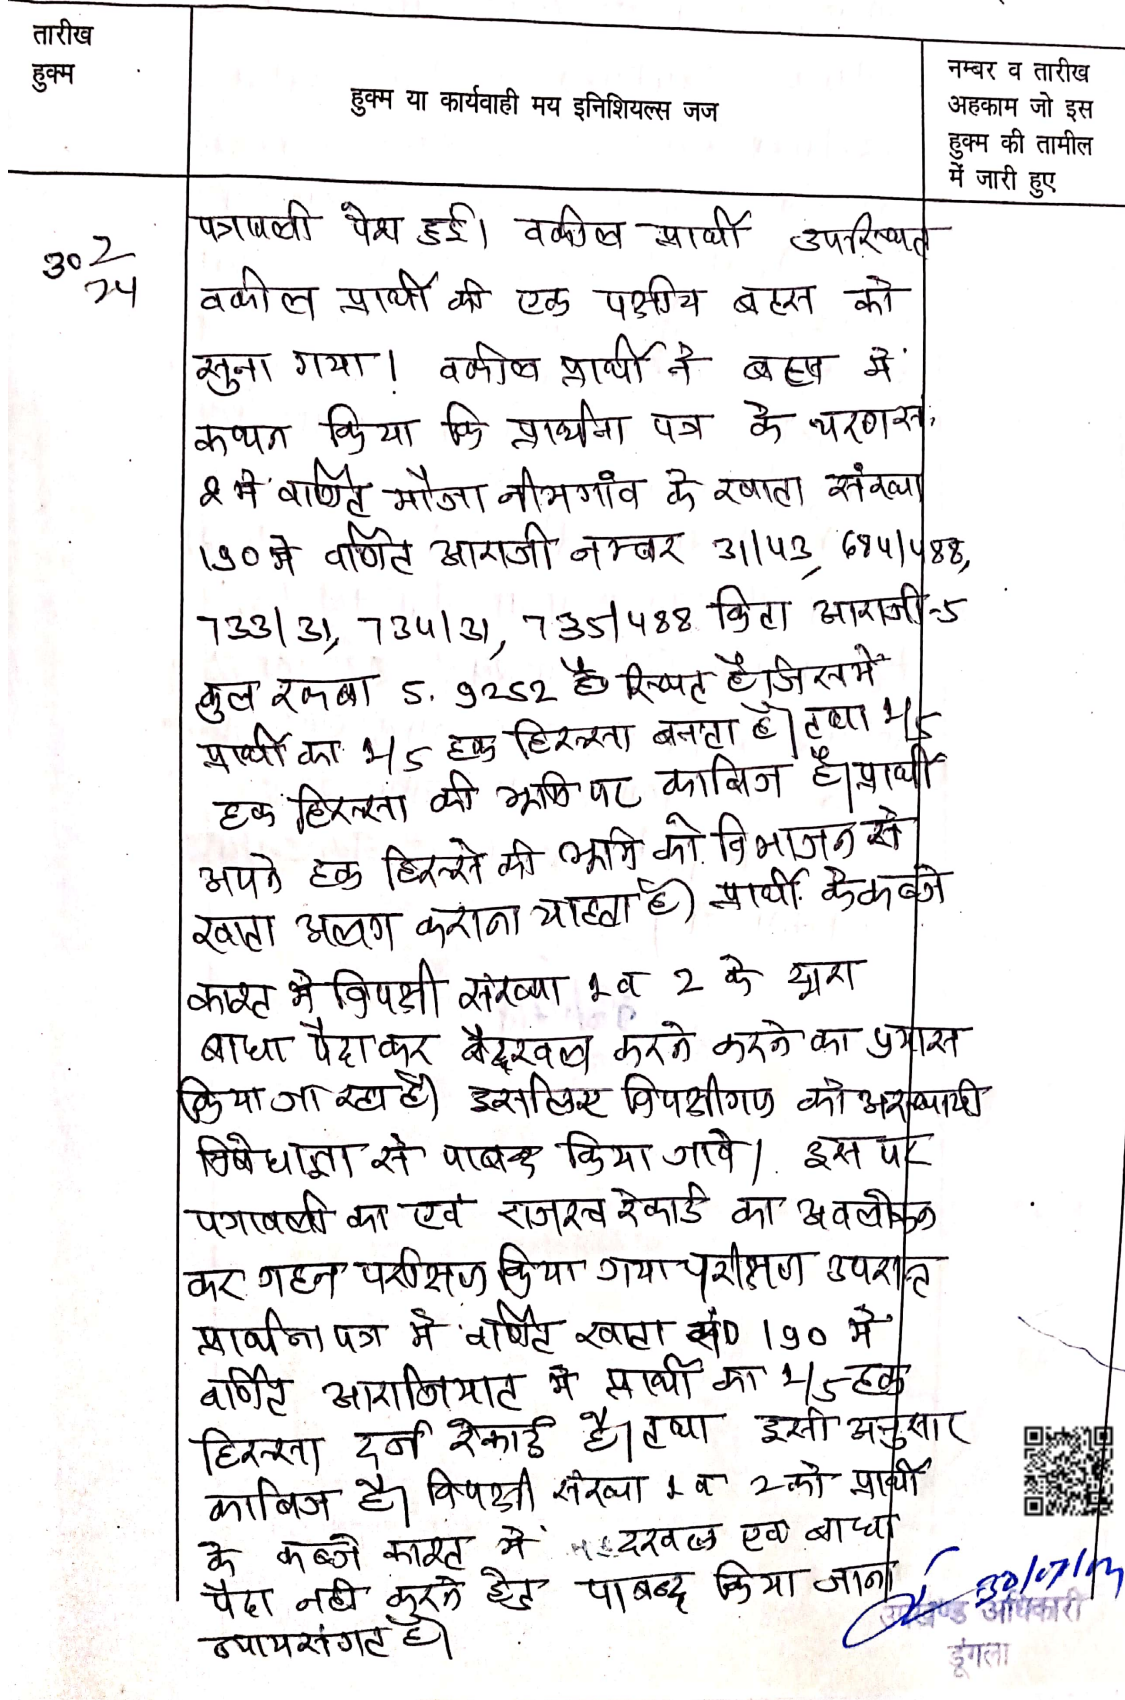 तारीख
हुक्म
हुक्म या कार्यवाही मय इनिशियल्स जज
नम्बर व तारीख
अहकाम जो इस
हुक्म की तामील
में जारी हुए
30 7/24
पत्रावली पेश हुई। वकील प्रार्थी उपस्थित
वकील प्रार्थी की एक पक्षीय बहस को
सुना गया। वकील प्रार्थी ने बहस में
कथन किया कि प्रार्थना पत्र के चरण सं.
2 में वर्णित मौजा नीमगांव के खाता संख्या
190 में वर्णित आराजी नम्बर 31/43, 684/488,
733/31, 734/31, 735/488 किता आराजी-5
कुल रकबा 5.9252 है० स्थित है। जिसमें
प्रार्थी का 1/5 हक हिस्सा बनता है। तथा 1/5
हक हिस्सा की भूमि पर काबिज है। प्रार्थी
अपने हक हिस्से की भूमि को विभाजन से
खाता अलग कराना चाहता है। प्रार्थी के कब्जे
काश्त में विपक्षी संख्या 1 व 2 के द्वारा
बाधा पैदा कर बेदखल करने करने का प्रयास
किया जा रहा है। इसलिए विपक्षीगण को अस्थायी
निषेधाज्ञा से पाबन्द किया जावे। इस पर
पत्रावली का एवं राजस्व रेकार्ड का अवलोकन
कर गहन परीक्षण किया गया परीक्षण उपरान्त
प्रार्थना पत्र में वर्णित खाता सं० 190 में
वर्णित आराजियात में प्रार्थी का 1/5 हक
हिस्सा दर्ज रेकार्ड है। तथा इसी अनुसार
काबिज है। विपक्षी संख्या 1 व 2 को प्रार्थी
के कब्जे काश्त में दखल एवं बाधा
पैदा नही करने हेतु पाबन्द किया जाना
न्यायसंगत है।
30/07/24
उपखण्ड अधिकारी
डूंगला